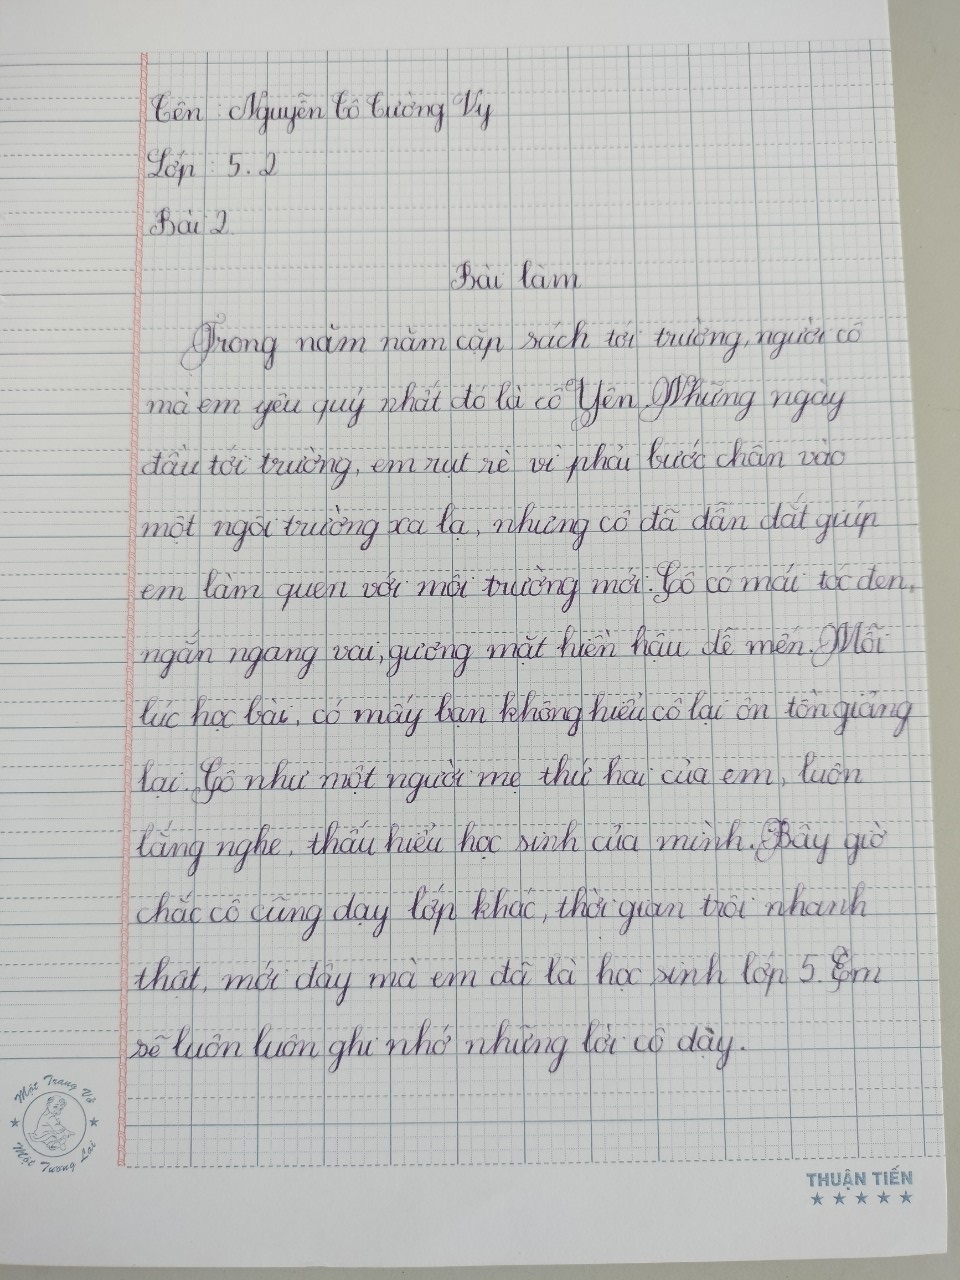 Tên : Nguyễn Tô Tường Vy
Lớp : 5.2
Bài 2
Bài làm
Trong năm năm cặp sách tới trường, người cô
mà em yêu quý nhất đó là cô Yên. Những ngày
đầu tới trường, em rụt rè vì phải bước chân vào
một ngôi trường xa lạ, nhưng cô đã dẫn dắt giúp
em làm quen với môi trường mới. Cô có mái tóc đen,
ngắn ngang vai, gương mặt hiền hậu dễ mến. Mỗi
lúc học bài, có mấy bạn không hiểu cô lại ôn tồn giảng
lại. Cô như một người mẹ thứ hai của em, luôn
lắng nghe, thấu hiểu học sinh của mình. Bây giờ
chắc cô cũng dạy lớp khác, thời gian trôi nhanh
thật, mới đây mà em đã là học sinh lớp 5. Em
sẽ luôn luôn ghi nhớ những lời cô dạy.
Một Trang Vở
Một Tương Lai
THUẬN TIẾN